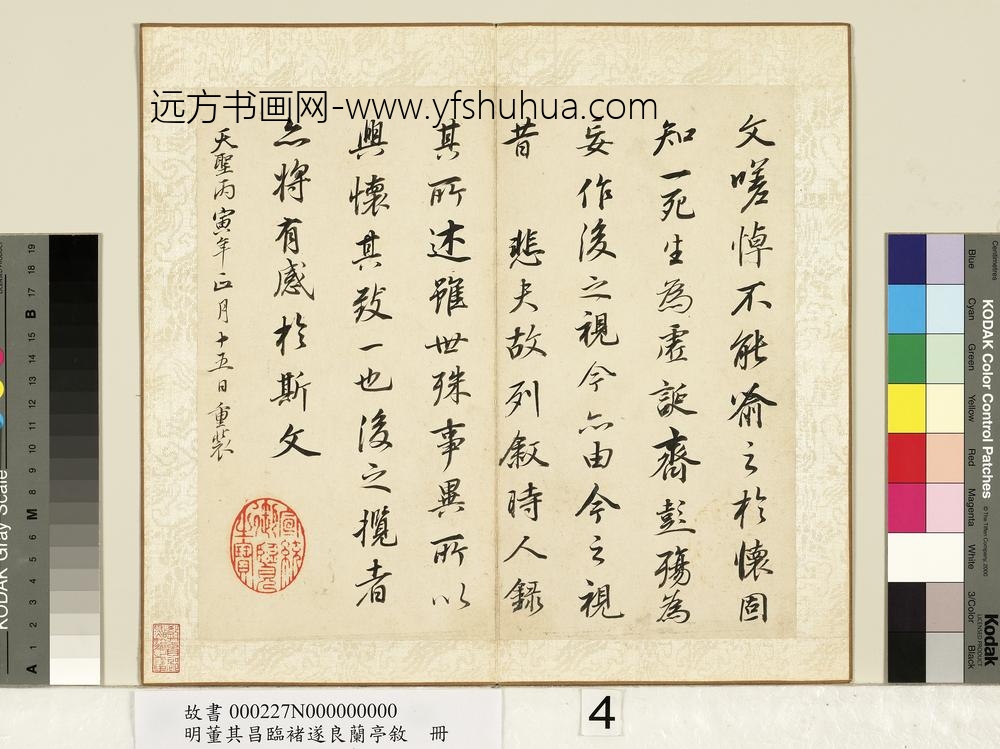 远方书画网-www.yfshuhua.com
文嗟悼不能喻之於懷固
知一死生為虛誕齊彭殤為
妄作後之視今亦由今之視
昔 悲夫故列敘時人錄
其所述雖世殊事異所以
興懷其致一也後之攬者
亦將有感於斯文
天聖丙寅年正月十五日重裝
故書 000227N000000000
明董其昌臨褚遂良蘭亭敘 冊
4
KODAK Gray Scale
A 1 2 3 4 5 6 M 8 9 10 11 12 13 14 15 B 17 18 19
KODAK Color Control Patches
© The Tiffen Company, 2000
Kodak
LICENSED PRODUCT
Centimetres
Blue
Cyan
Green
Yellow
Red
Magenta
White
3/Color
Black